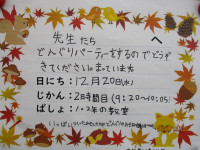 先生たち へ
どんぐりパーティーをするのでどうぞ
きてくださいまっています
日にち：12月20日(水)
じかん：2時間目(9:20～10:05)
ばしょ：1・2年の教室